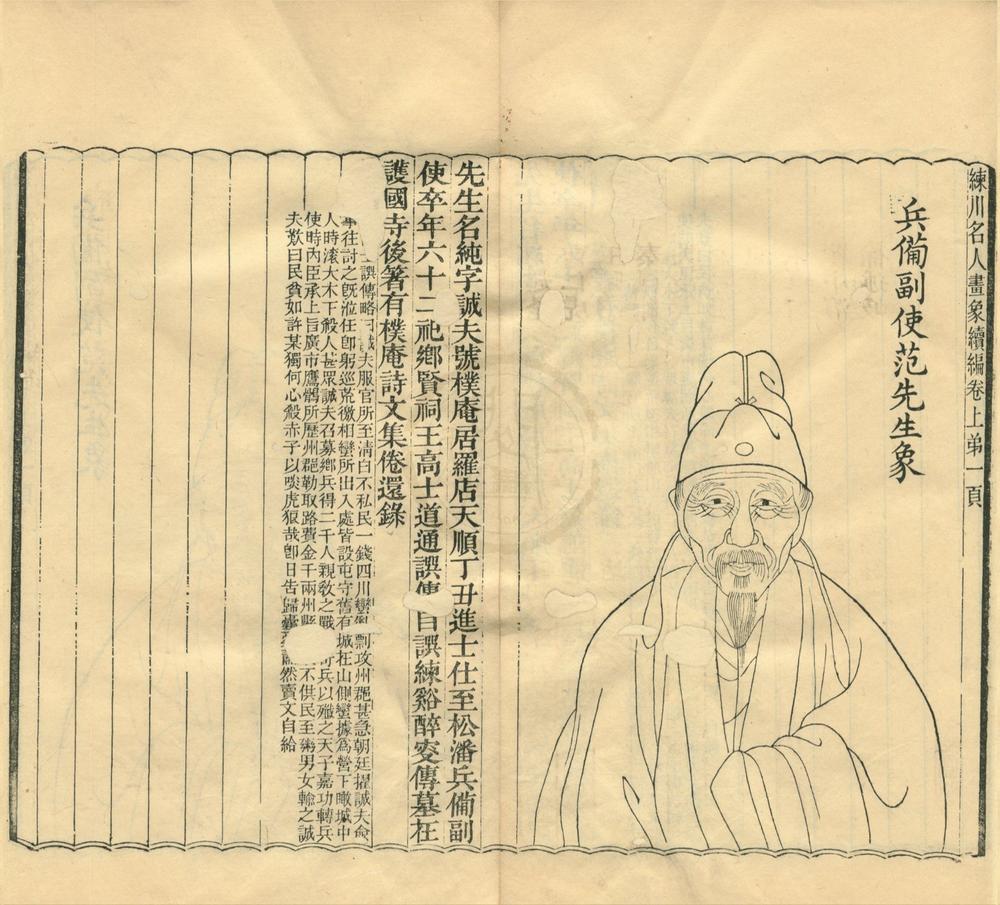 練川名人畫象續編卷上弟一頁
兵備副使范先生象
先生名純字誠夫號樸庵居羅店天順丁丑進士仕至松潘兵備副
使卒年六十二祀鄉賢祠王高士道通譔傳自譔練谿醉叜傳墓在
護國寺後箸有樸庵詩文集倦還錄
譔傳略曰誠夫服官所至淸白不私民一錢四川蠻 剽攻州郡甚急朝廷擢誠夫僉
事往討之旣涖任卽躬巡荒徼相蠻所出入處皆設屯守舊有城在山側蠻據爲營下瞰城中
人時滾大木下殺人甚眾誠夫召募鄉兵得二千人親敎之戰 兵以殱之天子嘉功轉兵
使時內臣承上旨廣市鷹鶻所歷州郡勒取路費金千兩州縣 不供民至粥男女輸之誠
夫歎曰民貧如許某獨何心殺赤子以啖虎狼哉卽日吿歸 然賣文自給